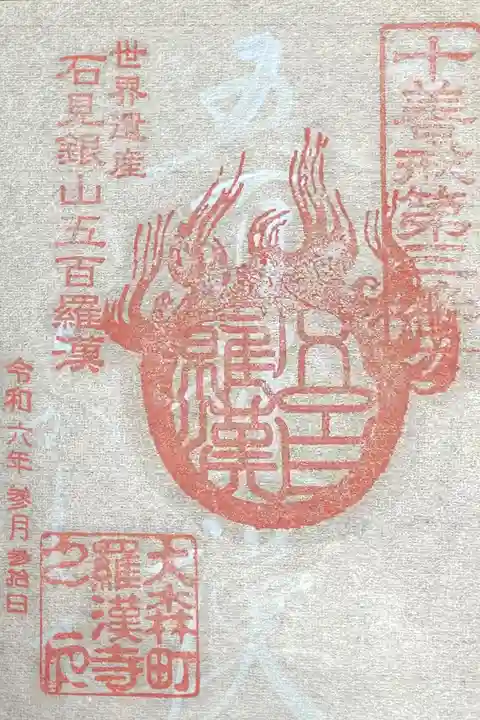 十善戒第三
五百
羅漢
世界遺産
石見銀山五百羅漢
令和六年 参月 参拾日
大森町
羅漢寺